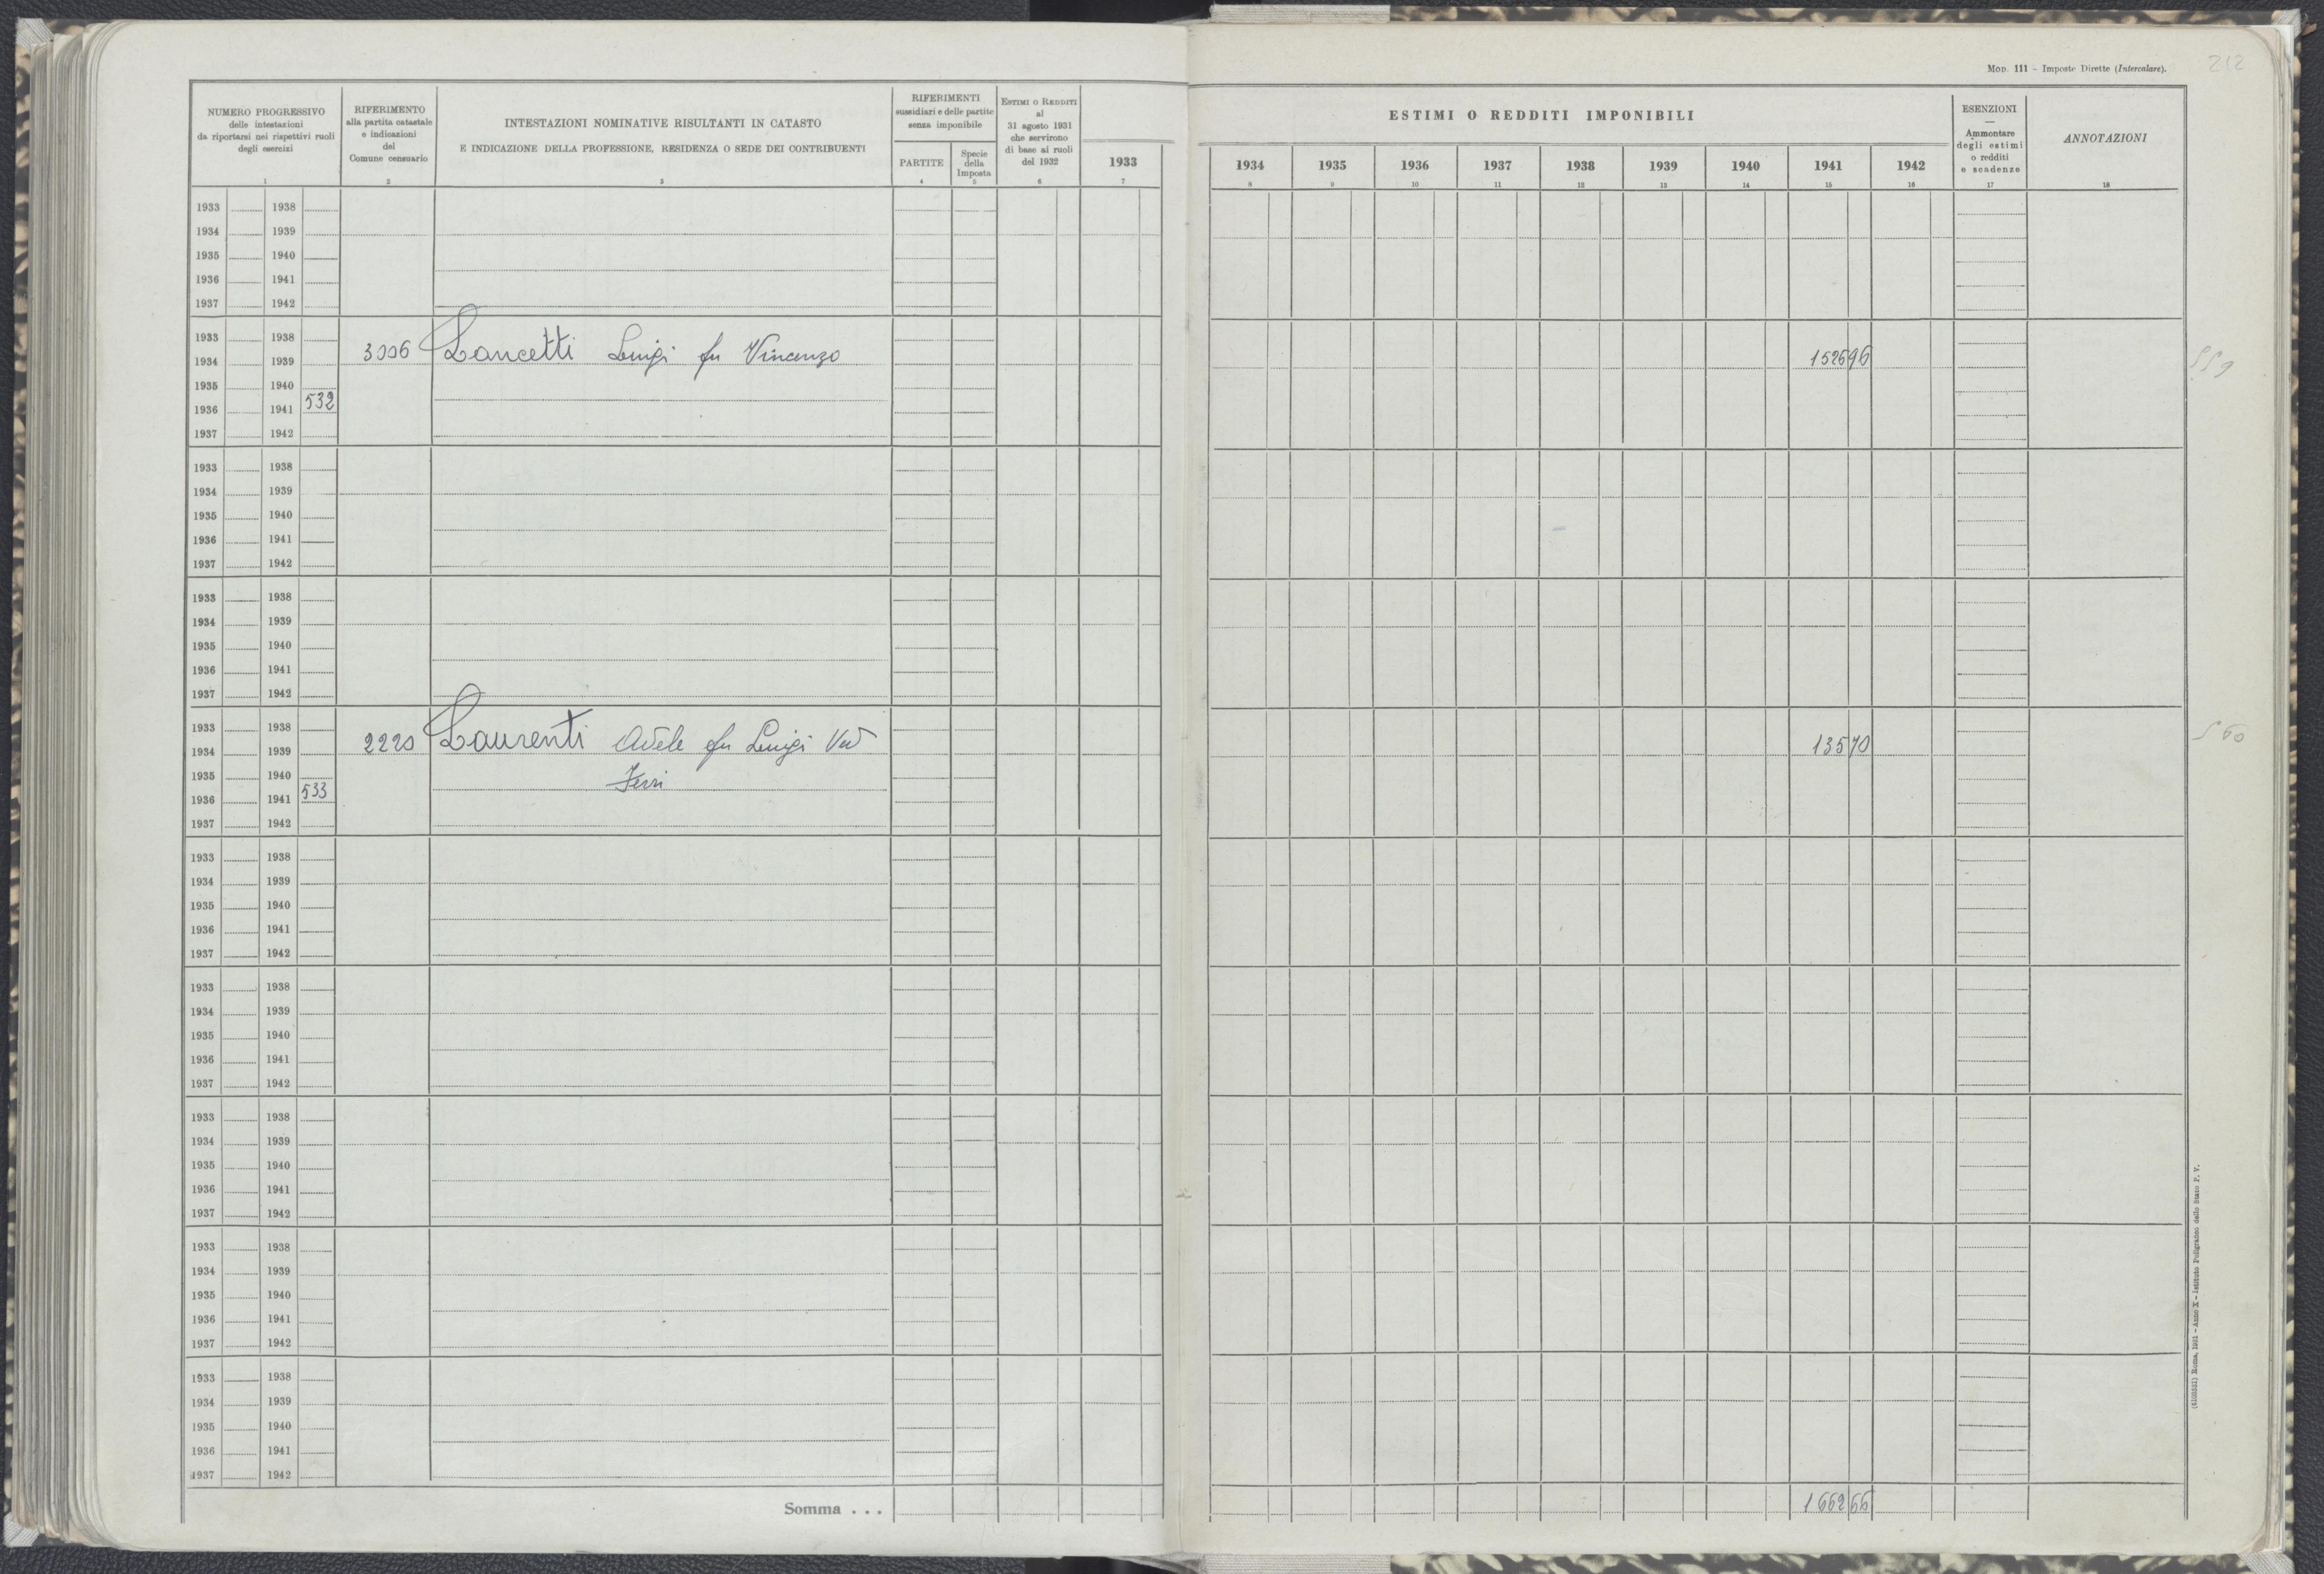 Mod. 111 - Imposte Dirette (Intercalare).
212
NUMERO PROGRESSIVO
delle intestazioni
da riportarsi nei rispettivi ruoli
degli esercizi
1
RIFERIMENTO
alla partita catastale
e indicazioni
del
Comune censuario
2
INTESTAZIONI NOMINATIVE RISULTANTI IN CATASTO
E INDICAZIONE DELLA PROFESSIONE, RESIDENZA O SEDE DEI CONTRIBUENTI
3
RIFERIMENTI
sussidiari e delle partite
senza imponibile
PARTITE
4
Specie
della
Imposta
5
Estimi o Redditi
al
31 agosto 1931
che servirono
di base ai ruoli
del 1932
6
1933
7
ESTIMI O REDDITI IMPONIBILI
1934 1935 1936 1937 1938 1939 1940 1941 1942
8 9 10 11 12 13 14 15 16
ESENZIONI
—
Ammontare
degli estimi
o redditi
e scadenze
17
ANNOTAZIONI
18
1933 1938
1934 1939
1935 1940
1936 1941
1937 1942
1933 1938
1934 1939 3006 Lancetti Luigi fu Vincenzo 152696 559
1935 1940
1936 1941 532
1937 1942
1933 1938
1934 1939
1935 1940
1936 1941
1937 1942
1933 1938
1934 1939
1935 1940
1936 1941
1937 1942
1933 1938
1934 1939 2220 Laurenti Adele fu Luigi Ved 13570 560
1935 1940 Ferri
1936 1941 533
1937 1942
1933 1938
1934 1939
1935 1940
1936 1941
1937 1942
1933 1938
1934 1939
1935 1940
1936 1941
1937 1942
1933 1938
1934 1939
1935 1940
1936 1941
1937 1942
1933 1938
1934 1939
1935 1940
1936 1941
1937 1942
1933 1938
1934 1939
1935 1940
1936 1941
1937 1942
Somma . . . 166266
(6103551) Roma, 1931 - Anno X - Istituto Poligrafico dello Stato P. V.